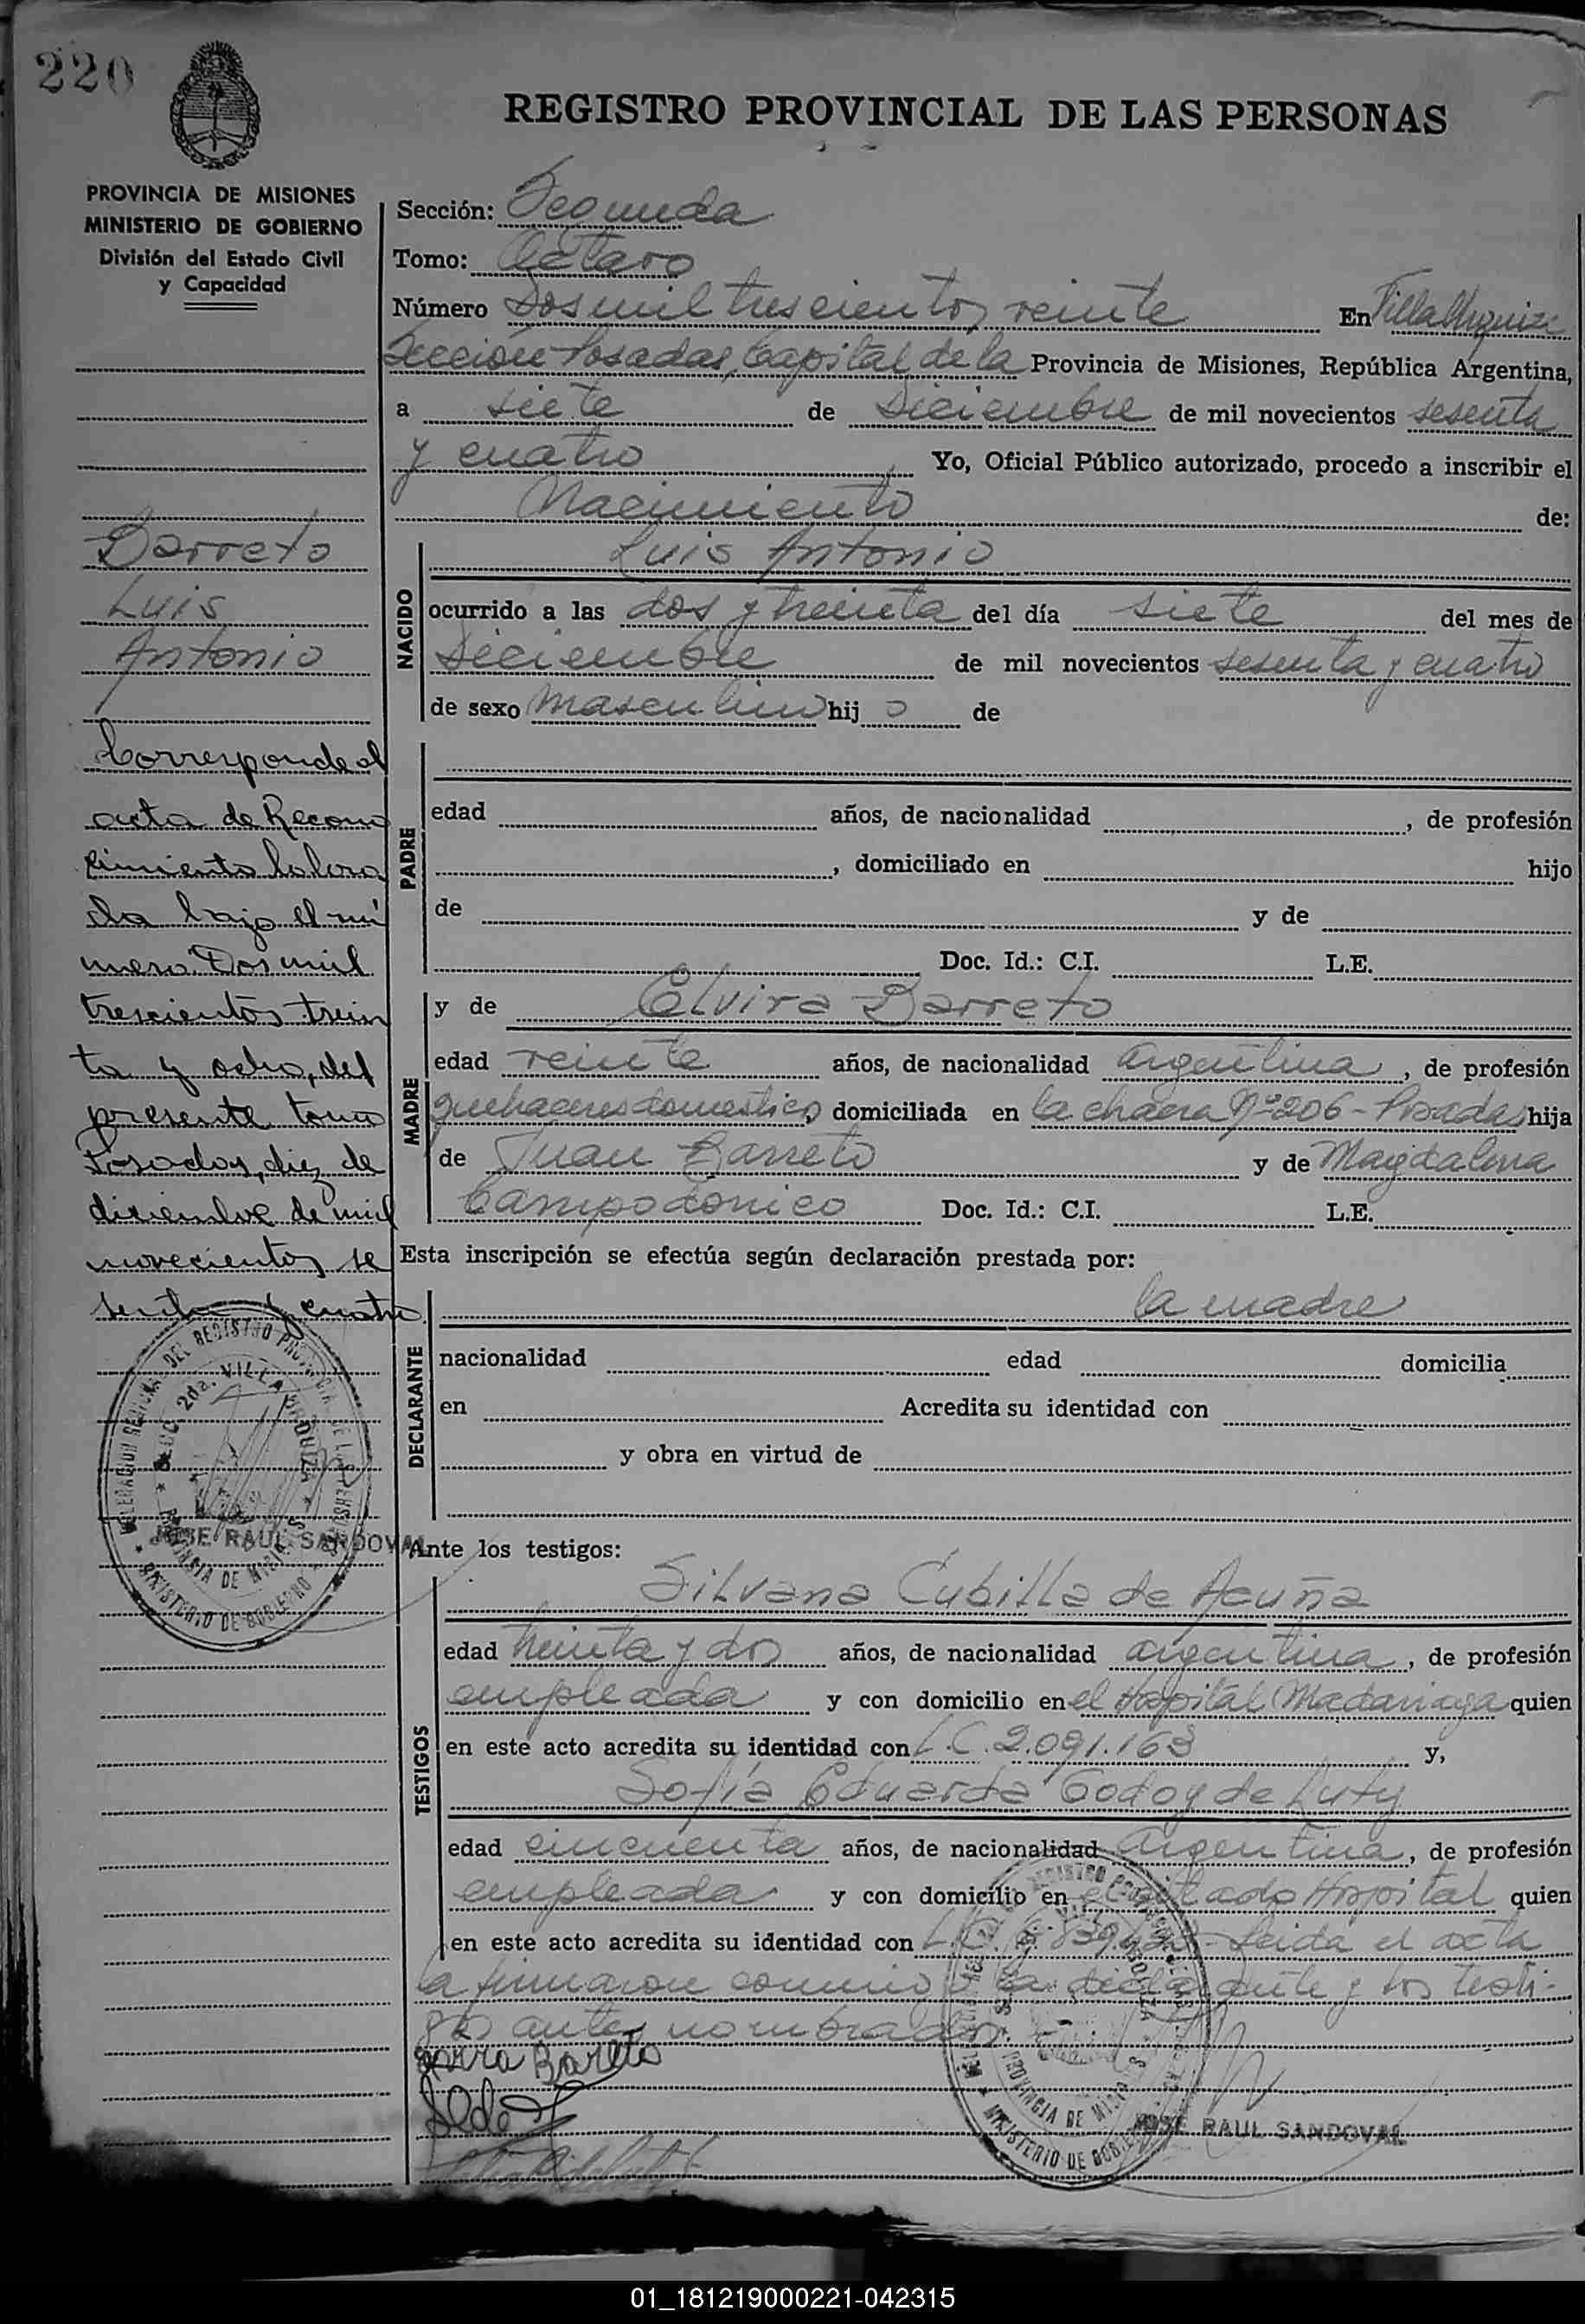 220
REGISTRO PROVINCIAL DE LAS PERSONAS
PROVINCIA DE MISIONES
MINISTERIO DE GOBIERNO
División del Estado Civil
y Capacidad
Barreto
Luis
Antonio
Corresponde al
acta de Recono
cimiento labra
da bajo el nú
mero Dos mil
trescientos trein
ta y ocho, del
presente tomo
Posadas, diez de
diciembre de mil
novecientos se
senta y cuatro.
JOSE RAUL SANDOVAL
Sección: Segunda
Tomo: Octavo
Número Dos mil trescientos veinte En Villa Urquiza
Sección Posadas, Capital de la Provincia de Misiones, República Argentina,
a siete de Diciembre de mil novecientos sesenta
y cuatro Yo, Oficial Público autorizado, procedo a inscribir el
Nacimiento de:
NACIDO
Luis Antonio
ocurrido a las dos y treinta del día siete del mes de
Diciembre de mil novecientos sesenta y cuatro
de sexo masculino hij o de
PADRE
edad años, de nacionalidad , de profesión
, domiciliado en hijo
de y de
Doc. Id.: C.I. L.E.
MADRE
y de Elvira Barreto
edad veinte años, de nacionalidad argentina, de profesión
quehaceres domesticos domiciliada en la chacra Nº 206 - Posadas hija
de Juan Barreto y de Magdalena
Campodonico Doc. Id.: C.I. L.E.
Esta inscripción se efectúa según declaración prestada por:
DECLARANTE
la madre
nacionalidad edad domicilia
en Acredita su identidad con
y obra en virtud de
Ante los testigos:
TESTIGOS
Silvana Cubilla de Acuña
edad treinta y dos años, de nacionalidad argentina, de profesión
empleada y con domicilio en el Hospital Madariaga quien
en este acto acredita su identidad con L.C. 2.091.163 y,
Sofía Eduarda Godoy de Luty
edad cincuenta años, de nacionalidad argentina, de profesión
empleada y con domicilio en el citado Hospital quien
en este acto acredita su identidad con L.C. Leida el acta
la firmaron conmigo la declarante y los testi-
gos antes nombrados
Barreto
JOSE RAUL SANDOVAL
01_181219000221-042315